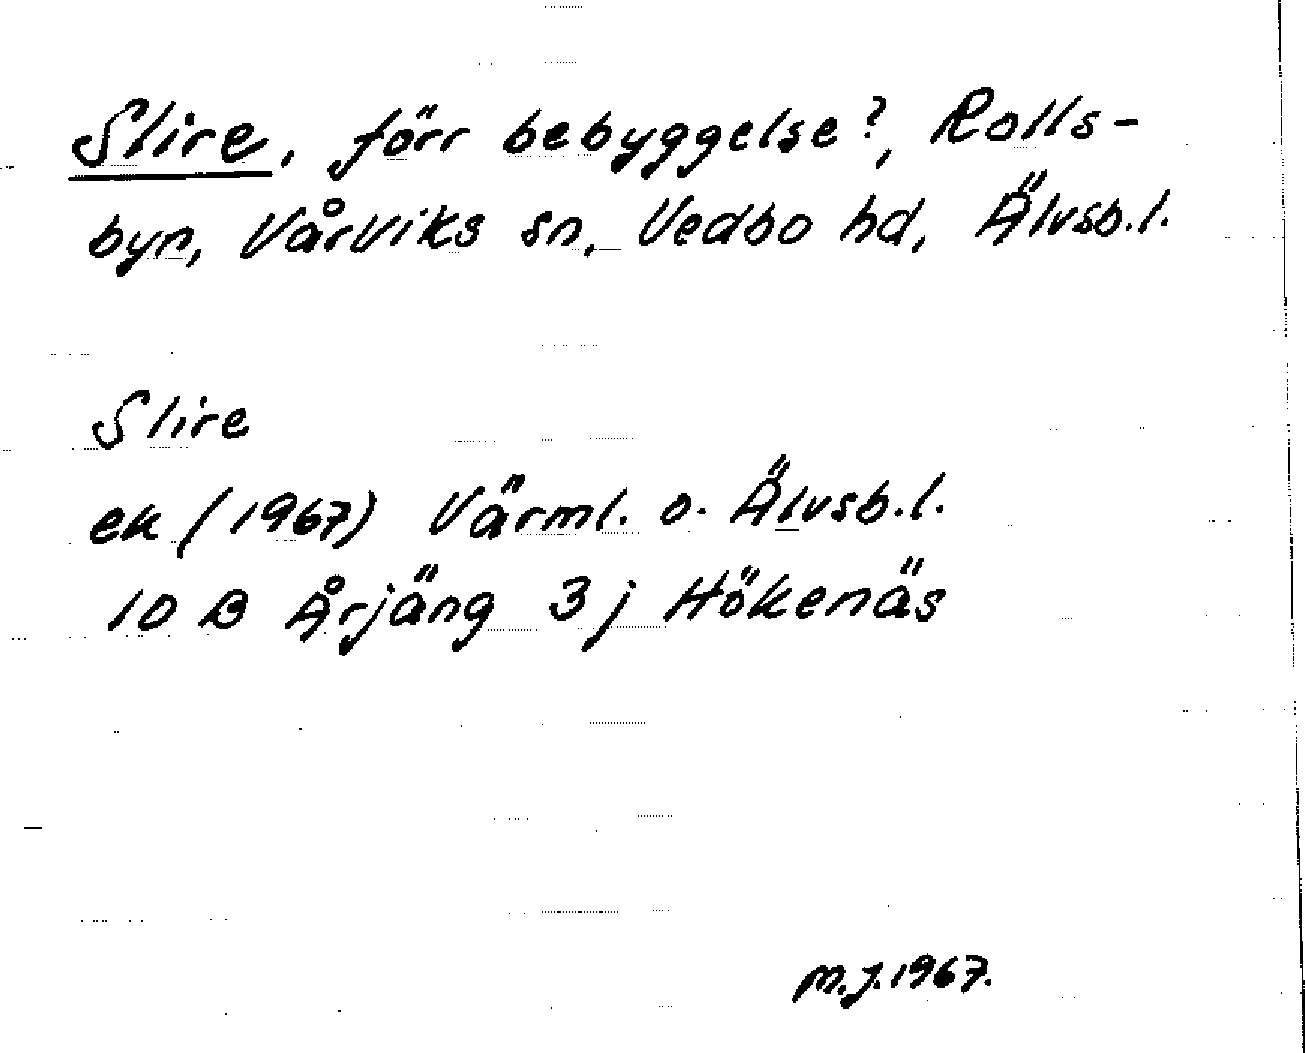 Slire, förr bebyggelse?, Rolls-
byn, Vårviks sn, Vedbo hd, Älvsb.l.
Slire
ek (1967) Värml. o. Älvsb.l.
10 B Årjäng 3 j Hökenäs
M.J. 1967.